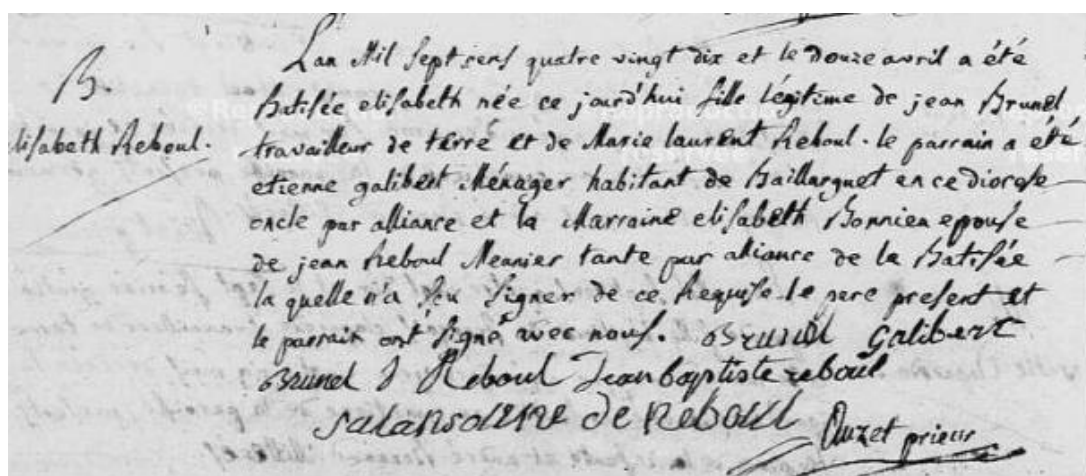 B.
elisabeth Reboul.
L'an Mil sept sens quatre vingt dix et le douze avril a été
Batisée elisabeth née ce jourd'hui fille légitime de jean Brunel
travailleur de terre et de Marie laurent Reboul. le parrain a été
etienne galibert Ménager habitant de Baillarguet en ce diocese
oncle par alliance et la Marraine elisabeth Bonnieu epouse
de jean Reboul Meunier tante par alliance de la Batisée
la quelle n'a seu signer de ce Requise le pere present et
le parrain ont signé avec nous. Brunel galibert
Brunel J Reboul Jean baptiste reboul
de Reboul
Ouzet prieur